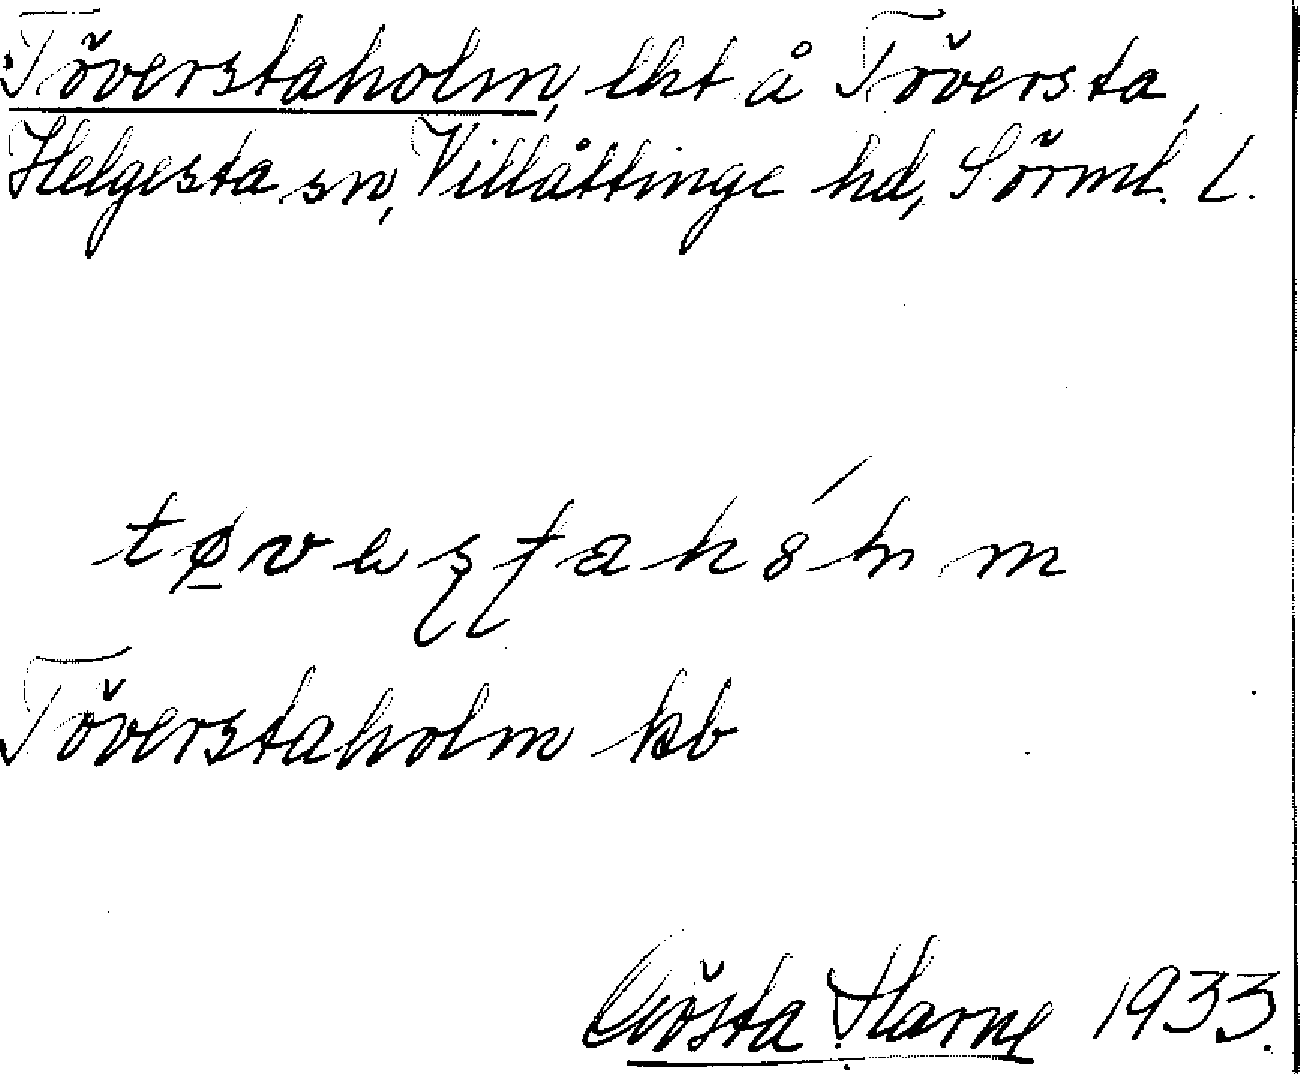 Töverstaholm, lht å Töversta,
Helgesta sn, Villåttinge hd, Sörml. L.
Töverstaholm kb
Gösta Harne 1933.